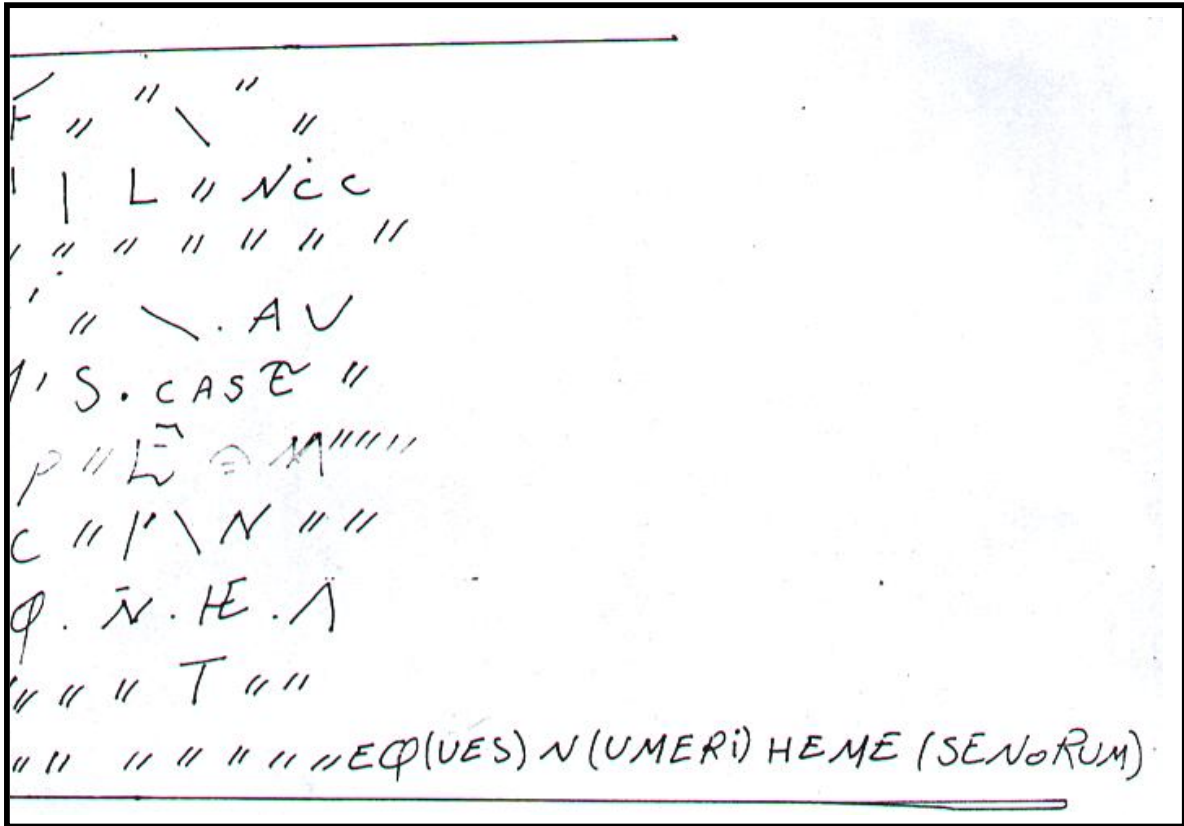 F " " \ " "
' | L " NCC
" " " " " " "
' " \ . AV
' S. CASE "
P " E M " " "
C " | ' \ N " "
Q . N . HE . Λ
" " " T " "
" " " " " " " EQ(UES) N(UMERI) HEME(SENORUM)